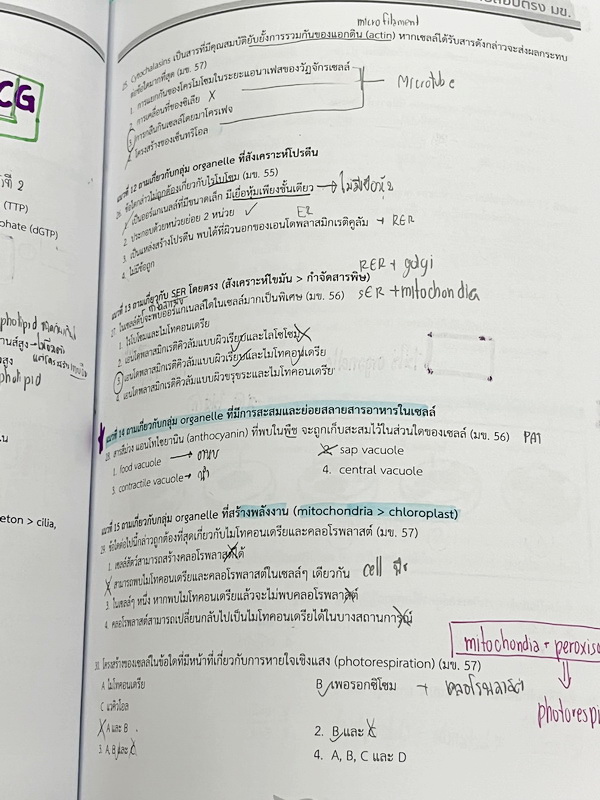 สอบตรง มข.
CG
วที่ 2
(TTP)
phate (dGTP)
pholipid
pholipid
eton > cilia,
microfilament
25. Cytochalasins เป็นสารที่มีคุณสมบัติยับยั้งการรวมกันของแอกติน (actin) หากเซลล์ได้รับสารดังกล่าวจะส่งผลกระทบ
ต่อข้อใดมากที่สุด (มข. 57)
1. การแยกกันของโครโมโซมในระยะแอนาเฟสของวัฏจักรเซลล์
Microtube
2. การเคลื่อนที่ของซีเลีย X
3. การกลืนกินเซลล์โดยมาโครเฟจ
4. โครงสร้างของเซ็นทริโอล
แนวที่ 12 ถามเกี่ยวกับกลุ่ม organelle ที่สังเคราะห์โปรตีน
26. ข้อใดกล่าวไม่ถูกต้องเกี่ยวกับไรโบโซม (มข. 55)
1. เป็นออร์แกเนลล์ที่มีขนาดเล็ก มีเยื่อหุ้มเพียงชั้นเดียว → ไม่มีเยื่อหุ้ม
2. ประกอบด้วยหน่วยย่อย 2 หน่วย ✓
ER
3. เป็นแหล่งสร้างโปรตีน พบได้ที่ผิวนอกของเอนโดพลาสมิกเรติคูลัม → RER
4. ไม่มีข้อถูก
RER + golgi
แนวที่ 13 ถามเกี่ยวกับ SER โดยตรง (สังเคราะห์ไขมัน > กำจัดสารพิษ)
SER + mitochondia
27. ในเซลล์ตับจะพบออร์แกเนลล์ใดในเซลล์มากเป็นพิเศษ (มข. 56)
1. ไรโบโซมและไมโทคอนเดรีย
2. เอนโดพลาสมิกเรติคิวลัมแบบผิวเรียบและไลโซโซม
3. เอนโดพลาสมิกเรติคิวลัมแบบผิวเรียบและไมโทคอนเดรีย
4. เอนโดพลาสมิกเรติคิวลัมแบบผิวขรุขระและไมโทคอนเดรีย
แนวที่ 14 ถามเกี่ยวกับกลุ่ม organelle ที่มีการสะสมและย่อยสลายสารอาหารในเซลล์
28. สารสีม่วง แอนโทไซยานิน (anthocyanin) ที่พบในพืช จะถูกเก็บสะสมไว้ในส่วนใดของเซลล์ (มข. 56) PAT
1. food vacuole
2. sap vacuole
3. contractile vacuole → น้ำ
4. central vacuole
แนวที่ 15 ถามเกี่ยวกับกลุ่ม organelle ที่สร้างพลังงาน (mitochondria > chloroplast)
29. ข้อใดต่อไปนี้กล่าวถูกต้องที่สุดเกี่ยวกับไมโทคอนเดรียและคลอโรพลาสต์ (มข. 57)
1. เซลล์สัตว์สามารถสร้างคลอโรพลาสต์ได้
2. สามารถพบไมโทคอนเดรียและคลอโรพลาสต์ในเซลล์ๆ เดียวกัน cell พืช
3. ในเซลล์ๆ หนึ่ง หากพบไมโทคอนเดรียแล้วจะไม่พบคลอโรพลาสต์
4. คลอโรพลาสต์สามารถเปลี่ยนกลับไปเป็นไมโทคอนเดรียได้ในบางสถานการณ์
mitochondia + peroxiso
30. โครงสร้างของเซลล์ในข้อใดที่มีหน้าที่เกี่ยวกับการหายใจเชิงแสง (photorespiration) (มข. 57)
A ไมโทคอนเดรีย
B เพอรอกซิโซม + คลอโรพลาสต์
C แวคิวโอล
photorespi
1. A และ B
2. B และ C
3. A, B และ C
4. A, B, C และ D